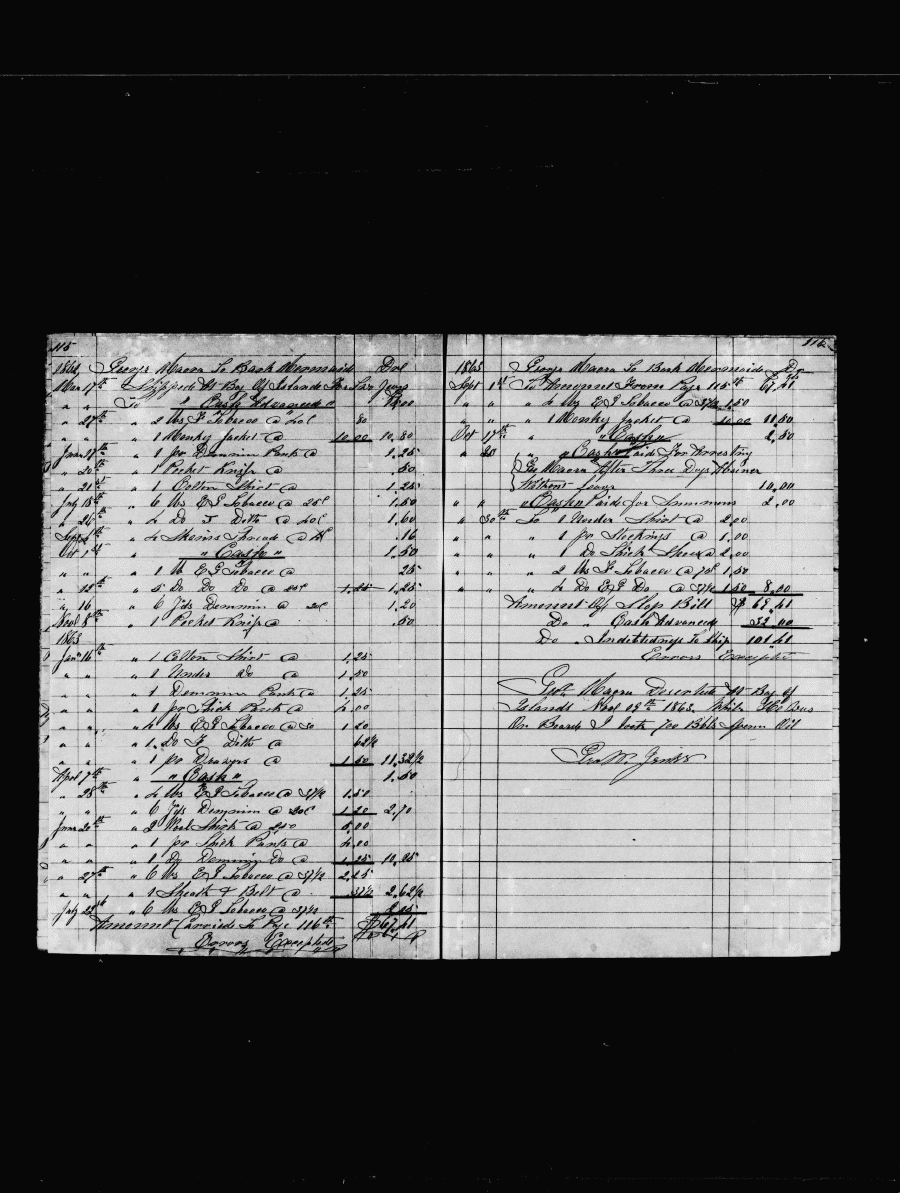 115
1862 George Maora To Bark Mermaid Dol
Mar 17th Shipped At Bay Of Islands For Two Years
" " To " Cash Advanced "
" 27th " 2 lbs F Tobacco @ 40c 80
" " " 1 Monky Jacket @ 10.00 10.80
June 17th " 1 pr Demmin Pants @ 1.25
" 20th " 1 Pocket Knife @ .50
" 21st " 1 Cotton Shirt @ 1.25
July 18th " 6 lbs EG Tobacco @ 25c 1.50
" 26th " 4 Do F Ditto @ 40c 1.60
Sept " 4 Skeins Threads @ 4c .16
Oct 1st " " Cash " 1.50
" " " 1 lb EG Tobacco @ 25
" 12th " 5 Do Do Do @ 25c 1.25 1.25
" 16 " 6 Yds Demmin @ 20c 1.20
Novl 8th " 1 Pocket Knife @ .50
1863
Jany 16th " 1 Cotton Shirt @ 1.25
" " " 1 Under Do @ 1.50
" " " 1 Demmin Pants @ 1.25
" " " 1 pr Thick Pants @ 4.00
" " " 4 lbs EG Tobacco @ 30 1.20
" " " 1 Do F Ditto @ 62½
" " " 1 pr Drawers @ 1.50 11.32½
Aprl 7th " 1 " Cash " 1.50
" 28th " 4 lbs EG Tobacco @ 37½ 1.50
" " " 6 Yds Demmin @ 20c 1.20 2.70
June 20th " 2 Wool Shirts @ 2.50 5.00
" " " 1 pr Thick Pants @ 4.00
" " " 1 Do Demmin Do @ 1.25 10.25
" 27th " 6 lbs EG Tobacco @ 37½ 2.25
" " " 1 Sheath & Belt @ .37½ 2.62½
July " 6 lbs EG Tobacco @ 37½ 2.25
Amount Carried To Page 116th $67.41
Errors Excepted
116
1863 George Maora To Bark Mermaid Dr
Sept 1st To Amount From Page 115th 67.41
" " " 4 lbs EG Tobacco @ 37½ 1.50
" " " 1 Monky Jacket @ 10.00 11.50
Oct 17th " " Cash " 2.50
" " " Cash Paid For Arresting
Geo Maora After Three Days Absence
Without leave 10.00
" " " Cash " Paid for Summons 2.00
" 30th To 1 Under Shirt @ 2.00
" " " 1 pr Stockings @ 1.00
" " " 1 Do Thick Shoes @ 2.00
" " " 2 lbs F Tobacco @ 75c 1.50
" " " 4 Do EG Do @ 37½ 1.50 8.00
Amount Of Slop Bill $ 69.41
Do " Cash Advanced 32.00
Do " Indebtedness To Ship 101.41
Errors Excepted
Geo Maora Deserted At Bay of
Islands Novl 1863 While He Was
On Board I took 700 Bbls Sperm Oil